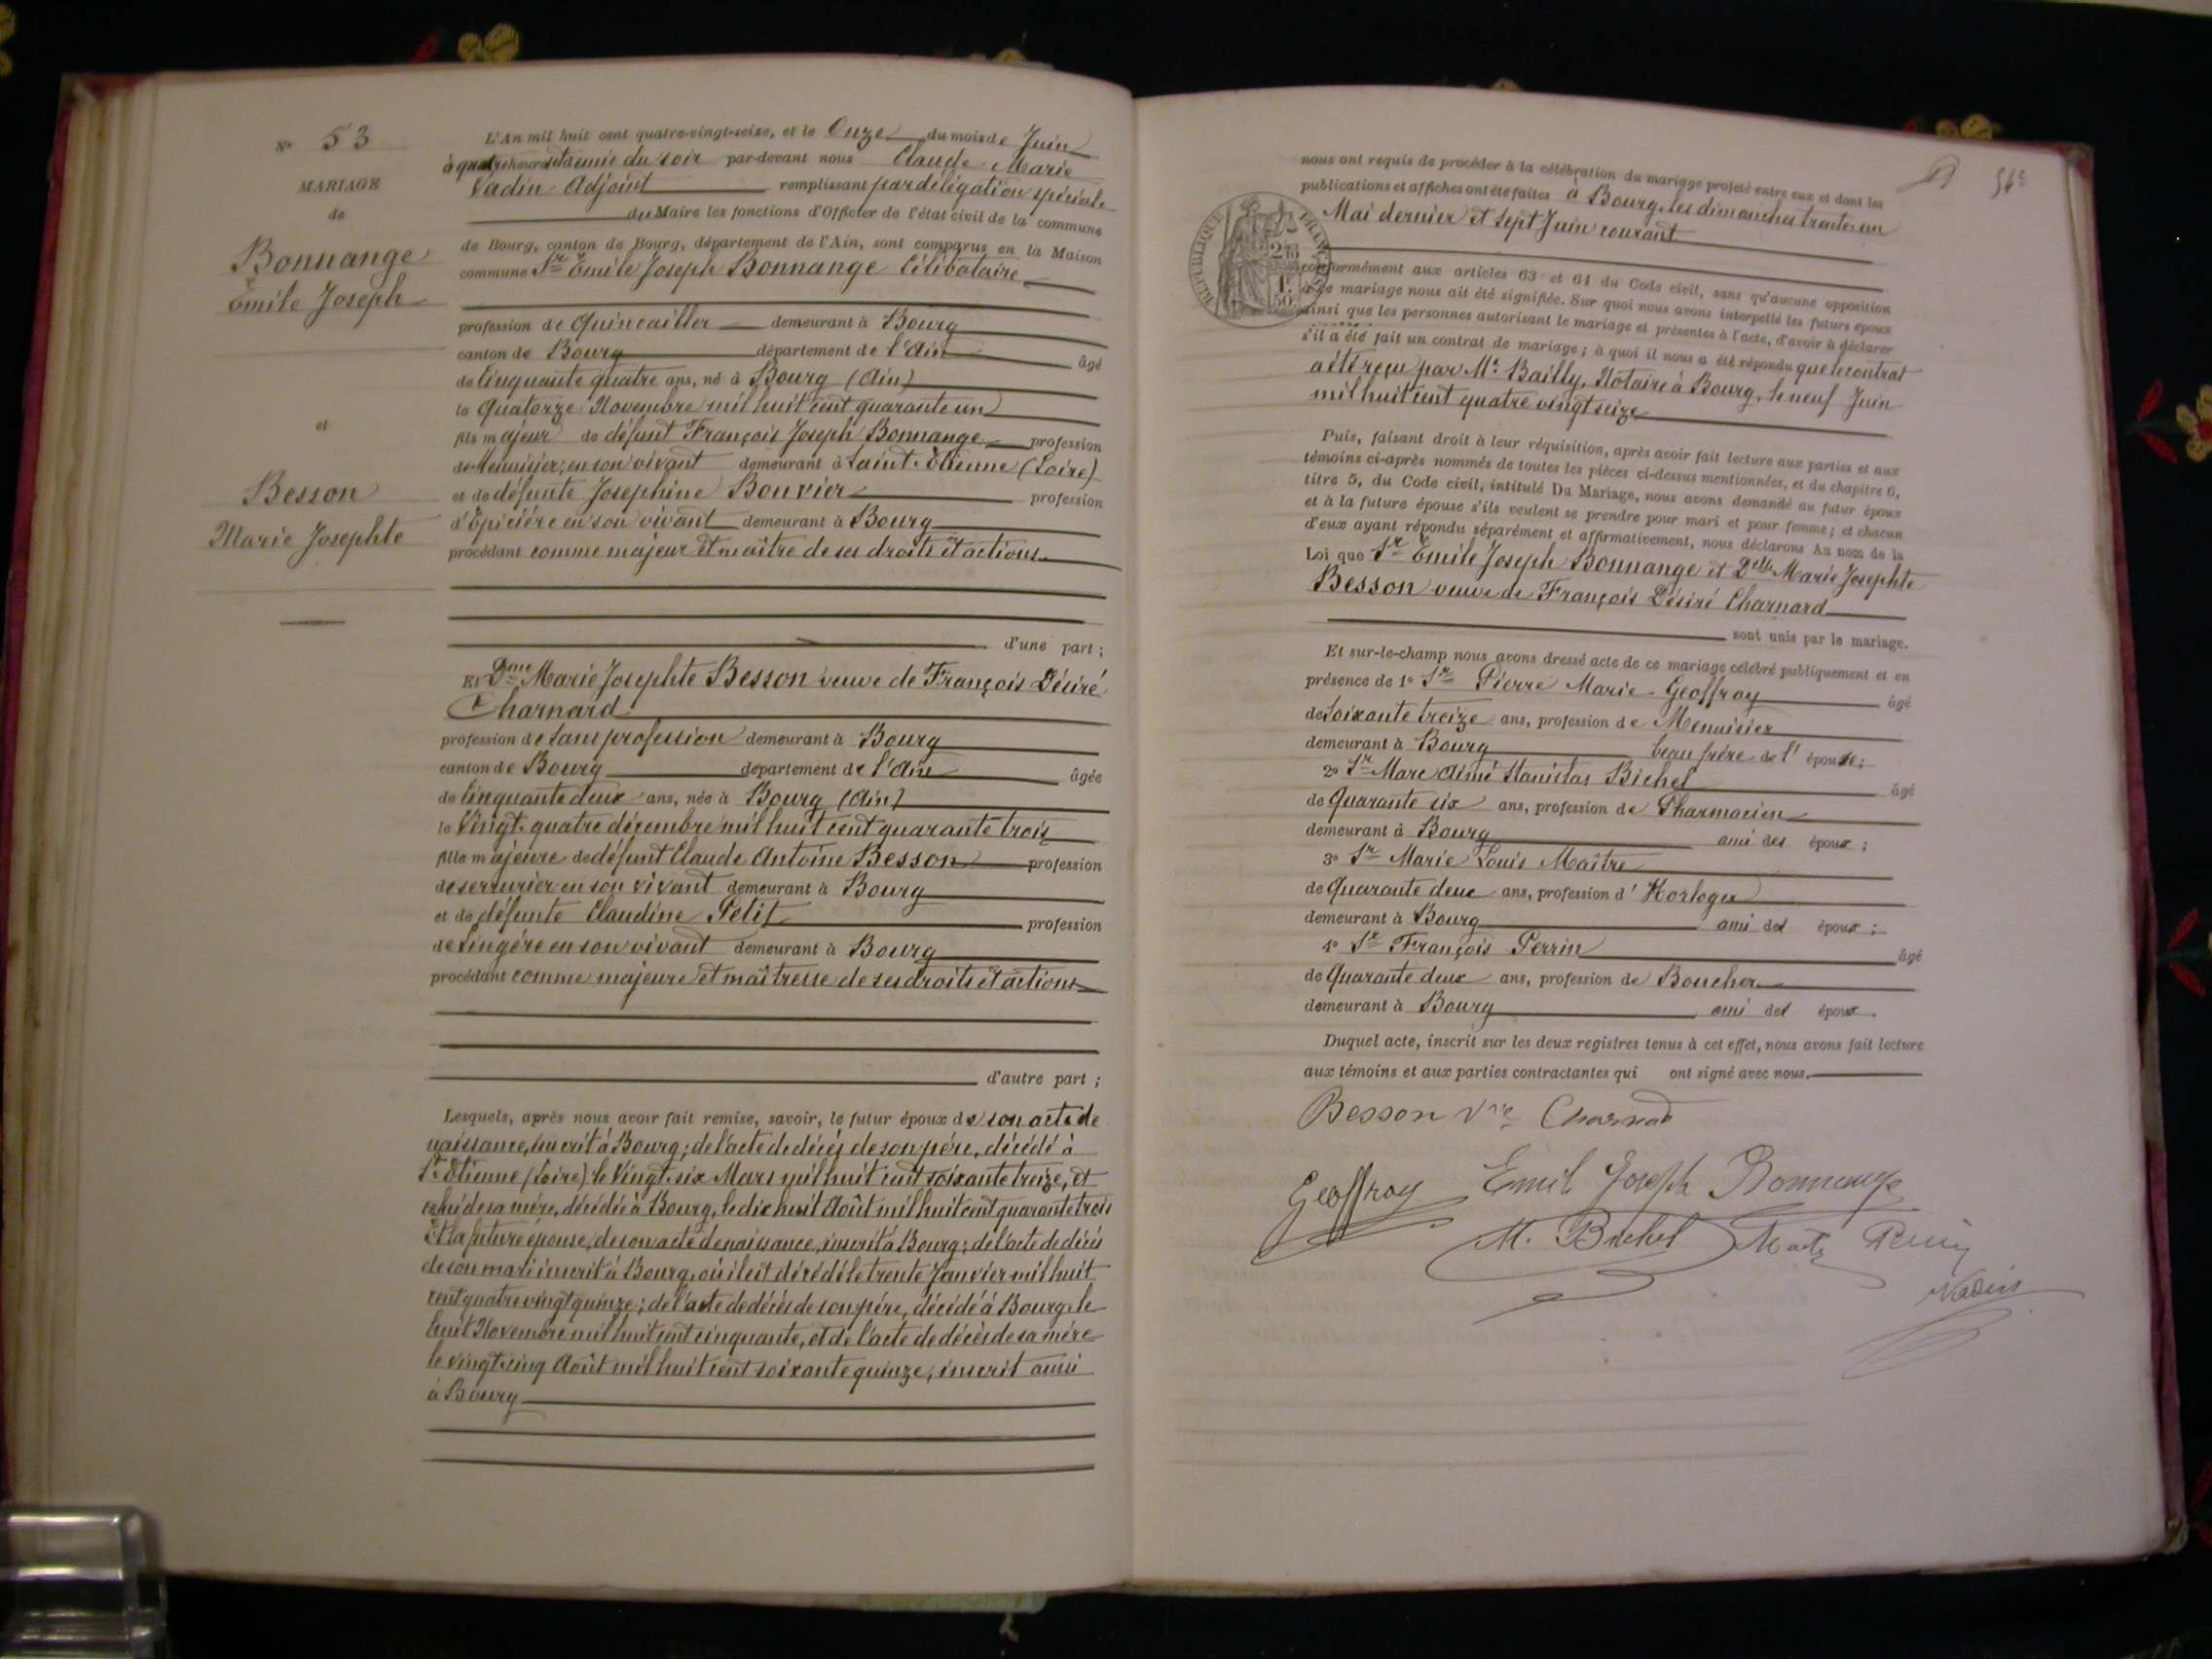 N° 53
MARIAGE
de
Bonnange
Emile Joseph
et
Besson
Marie Josephte
L'An mil huit cent quatre-vingt-seize, et le Onze du mois de Juin
à quatre heures et demie du soir par-devant nous Claude Marie
Vadin Adjoint remplissant par délégation spéciale
du Maire les fonctions d'Officier de l'état civil de la commune
de Bourg, canton de Bourg, département de l'Ain, sont comparus en la Maison
commune Sr Emile Joseph Bonnange Célibataire
profession de Quincailler demeurant à Bourg
canton de Bourg département de l'Ain âgé
de Cinquante quatre ans, né à Bourg (Ain)
le Quatorze Novembre mil huit cent quarante un
fils majeur de défunt François Joseph Bonnange profession
de Menuisier, en son vivant demeurant à Saint-Etienne (Loire)
et de défunte Josephine Bouvier profession
d'Epicière en son vivant demeurant à Bourg
procédant comme majeur et maître de ses droits et actions
d'une part ;
Et Dme Marie Josephte Besson veuve de François Désiré
Charnard
profession de Sans profession demeurant à Bourg
canton de Bourg département de l'Ain âgée
de Cinquante deux ans, née à Bourg (Ain)
le Vingt-quatre décembre mil huit cent quarante trois
fille majeure de défunt Claude Antoine Besson profession
de serrurier en son vivant demeurant à Bourg
et de défunte Claudine Petit profession
de Lingère en son vivant demeurant à Bourg
procédant comme majeure et maîtresse de ses droits et actions
d'autre part ;
Lesquels, après nous avoir fait remise, savoir, le futur époux de son acte de
naissance, inscrit à Bourg ; de l'acte de décès de son père, décédé à
St Etienne (Loire) le Vingt-six Mars mil huit cent soixante treize, et
celui de sa mère, décédée à Bourg, le dix huit Août mil huit cent quarante trois
Et la future épouse, de son acte de naissance, inscrit à Bourg ; de l'acte de décès
de son mari inscrit à Bourg, où il est décédé le trente Janvier mil huit
cent quatre vingt quinze ; de l'acte de décès de son père, décédé à Bourg, le
huit Novembre mil huit cent cinquante, et de l'acte de décès de sa mère
le vingt-cinq Août mil huit cent soixante quinze, inscrit aussi
à Bourg
56e
nous ont requis de procéder à la célébration du mariage projeté entre eux et dont les
publications et affiches ont été faites à Bourg, les dimanches trente-un
Mai dernier et sept Juin courant
RÉPUBLIQUE FRANÇAISE
1f 50
conformément aux articles 63 et 64 du Code civil, sans qu'aucune opposition
à ce mariage nous ait été signifiée. Sur quoi nous avons interpellé les futurs époux
ainsi que les personnes autorisant le mariage et présentes à l'acte, d'avoir à déclarer
s'il a été fait un contrat de mariage ; à quoi il nous a été répondu que le contrat
a été reçu par Me Bailly, Notaire à Bourg, le neuf Juin
mil huit cent quatre vingt seize
Puis, faisant droit à leur réquisition, après avoir fait lecture aux parties et aux
témoins ci-après nommés de toutes les pièces ci-dessus mentionnées, et du chapitre 6,
titre 5, du Code civil, intitulé Du Mariage, nous avons demandé au futur époux
et à la future épouse s'ils veulent se prendre pour mari et pour femme ; et chacun
d'eux ayant répondu séparément et affirmativement, nous déclarons Au nom de la
Loi que Sr Emile Joseph Bonnange et Delle Marie Josephte
Besson veuve de François Désiré Charnard
sont unis par le mariage.
Et sur-le-champ nous avons dressé acte de ce mariage célébré publiquement et en
présence de 1° Sr Pierre Marie Geoffray âgé
de Soixante treize ans, profession de Menuisier
demeurant à Bourg beau frère de l'épouse ;
2° Sr Marc Aimé Stanislas Bichel âgé
de Quarante six ans, profession de Pharmacien
demeurant à Bourg ami des époux ;
3° Sr Marie Louis Maître
de Quarante deux ans, profession d'Horloger
demeurant à Bourg ami des époux ;
4° Sr François Perrin âgé
de Quarante deux ans, profession de Boucher
demeurant à Bourg ami des époux.
Duquel acte, inscrit sur les deux registres tenus à cet effet, nous avons fait lecture
aux témoins et aux parties contractantes qui ont signé avec nous.
Besson Vve Charnad
Geoffray Emile Joseph Bonnange
M. Bichel
Vadin